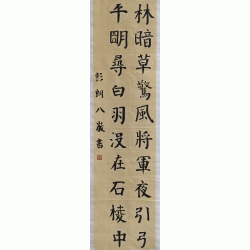 林暗草驚風將軍夜引弓
平明尋白羽没在石棱中
彭朗八歲書